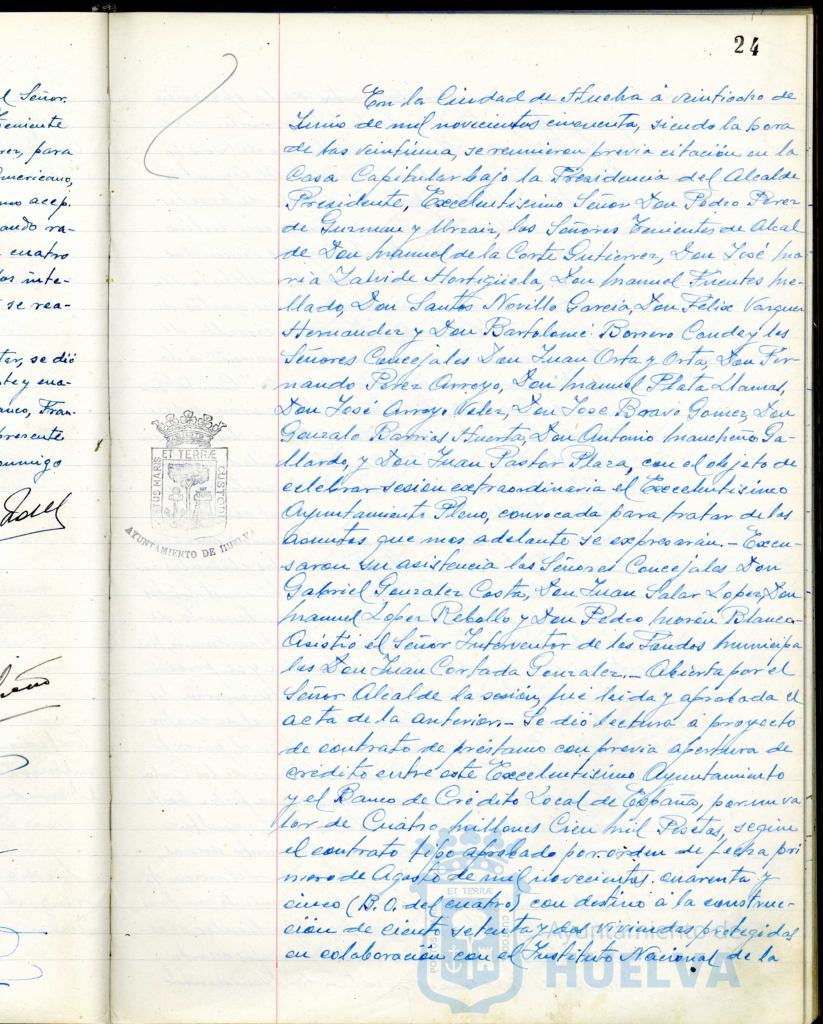 24
l Señor.
Teniente
rez, para
Americano,
mo acep.
ando ra-
cuatro
los inte-
se rea-
ter, se dió
te y cua-
anco, Fran-
presente
conmigo
En la Ciudad de Huelva á veintiocho de
Junio de mil novecientos cincuenta, siendo la hora
de las veintiuna, se reunieron previa citación en la
Casa Capitular bajo la Presidencia del Alcalde
Presidente, Excelentisimo Señor Don Pedro Perez
de Guzman y Urzaiz, los Señores Tenientes de Alcal
de Don Manuel de la Corte Gutierrez, Don José Ma
ria Zalvide Hortigüela, Don Manuel Fuentes Me
llado, Don Santos Novillo Garcia, Don Felix Vazquez
Hernandez y Don Bartolomé Borrero Conde y los
Señores Concejales Don Juan Orta y Orta, Don Fer
nando Perez Arroyo, Don Manuel Plata Llamas,
Don José Arroyo Velez, Don Jose Bravo Gomez, Don
Gonzalo Barrios Huerta, Don Antonio Mancheño Ga-
llardo, y Don Juan Pastor Plaza, con el objeto de
celebrar sesión extraordinaria el Excelentisimo
Ayuntamiento Pleno, convocada para tratar de los
asuntos que mas adelante se expresarán.- Excu-
saron su asistencia los Señores Concejales Don
Gabriel Gonzalez Costa, Don Juan Salar Lopez, Don
Manuel Lopez Rebollo y Don Pedro Morón Blanco.-
Asistió el Señor Interventor de los Fondos Municipa
les Don Juan Cortada Gonzalez.- Abierta por el
Señor Alcalde la sesión, fué leida y aprobada el
acta de la anterior.- Se dió lectura á proyecto
de contrato de préstamo con previa apertura de
crédito entre este Excelentisimo Ayuntamiento
y el Banco de Crédito Local de España, por un va
lor de Cuatro Millones Cien mil Pesetas, segun
el contrato tipo aprobado por orden de fecha pri
mero de Agosto de mil novecientos cuarenta y
cinco (B.O. del cuatro) con destino á la construc-
ción de ciento setenta y dos viviendas protegidas
en colaboración con el Instituto Nacional de la
ET TERRÆ
PORTUS MARIS
CUSTODIA
AYUNTAMIENTO DE HUELVA
ET TERRÆ
Ayuntamiento de
HUELVA